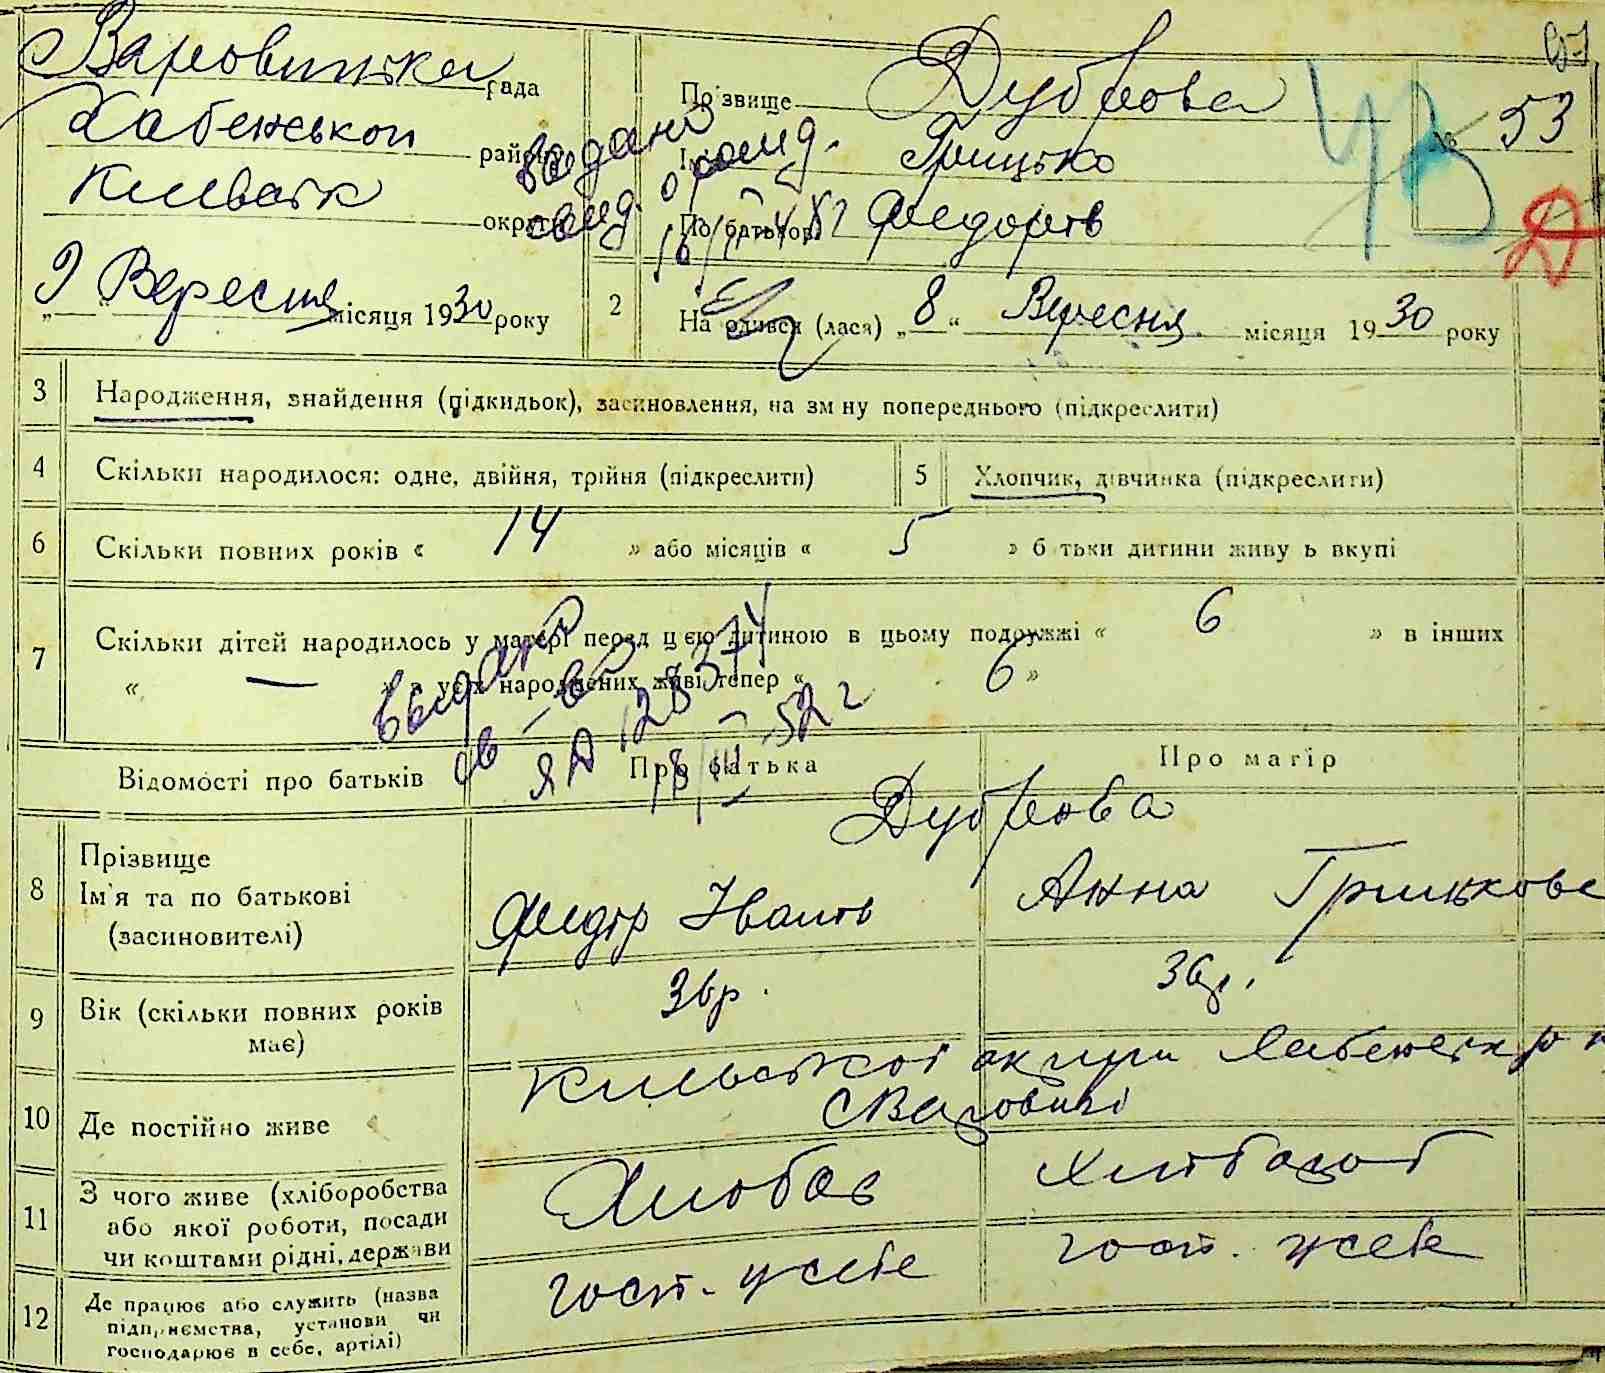 Варовицька рада
Хабенського району
Київськ округи
„9“ Вересня місяця 1930 року
Прізвище Дуброва
№ 53
Ім'я Грицько
По батькові Федорів
2 Народився (лася) „8“ Вересня місяця 1930 року
3 Народження, знайдення (підкидьок), засиновлення, на зміну попереднього (підкреслити)
4 Скільки народилося: одне, двійня, трійня (підкреслити)
5 Хлопчик, дівчинка (підкреслити)
6 Скільки повних років « 14 » або місяців « 5 » батьки дитини живуть вкупі
7 Скільки дітей народилось у матері перед цією дитиною в цьому подружжі « 6 » в інших
« — » з усіх народжених живі тепер « 6 »
выдано
св-во
ЯА 128374
18/III-52 г
Відомості про батьків
Про батька
Про матір
8 Прізвище
Ім'я та по батькові
(засиновителі)
Дуброва
Федір Іванів
Анна Грицькова
9 Вік (скільки повних років
має)
36р.
36р.
10 Де постійно живе
Київської округи Хабенськ р н
с Варовичі
11 З чого живе (хліборобства
або якої роботи, посади
чи коштами рідні, держави
Хлібороб
12 Де працює або служить (назва
підприємства, установи чи
господарює в себе, артілі)
госп. у себе
госп. у себе